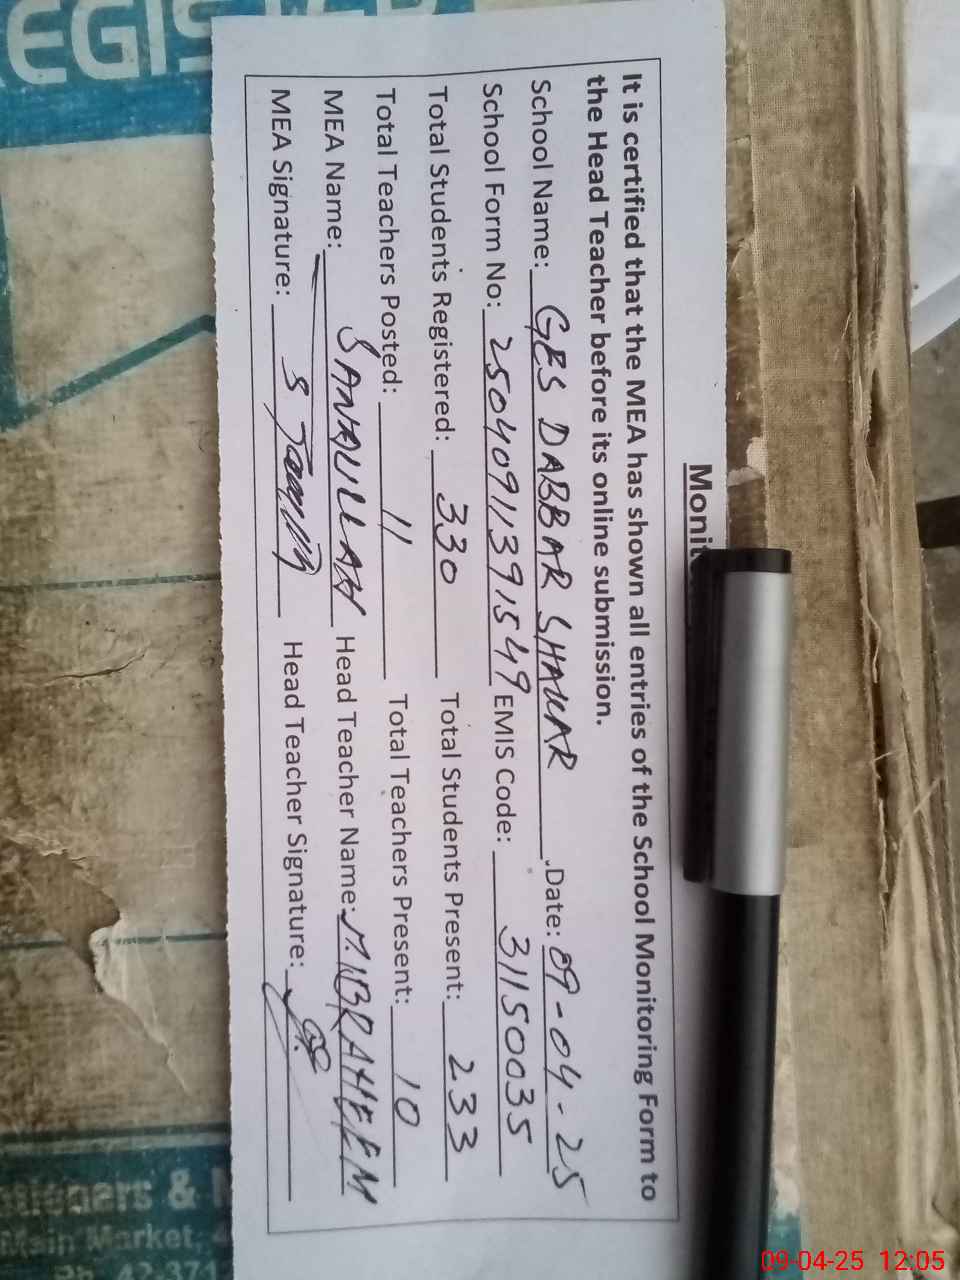 REGISTER
Monit
It is certified that the MEA has shown all entries of the School Monitoring Form to
the Head Teacher before its online submission.
School Name: GES DABBAR SHAWAR Date: 09-04-25
School Form No: 25040911391549 EMIS Code: 31150035
Total Students Registered: 330 Total Students Present: 233
Total Teachers Posted: 11 Total Teachers Present: 10
MEA Name: SANAULLAH Head Teacher Name: M.IBRAHEEM
MEA Signature: Head Teacher Signature:
tioners &
Main Market,
Ph: 42-371
09-04-25 12:05